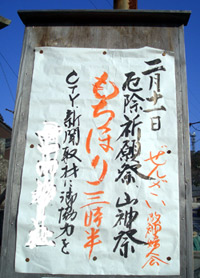 二月十一日
ぜんざい
厄除祈願祭 山神祭
もちほり 三時半
CTY、新聞取材に御協力を